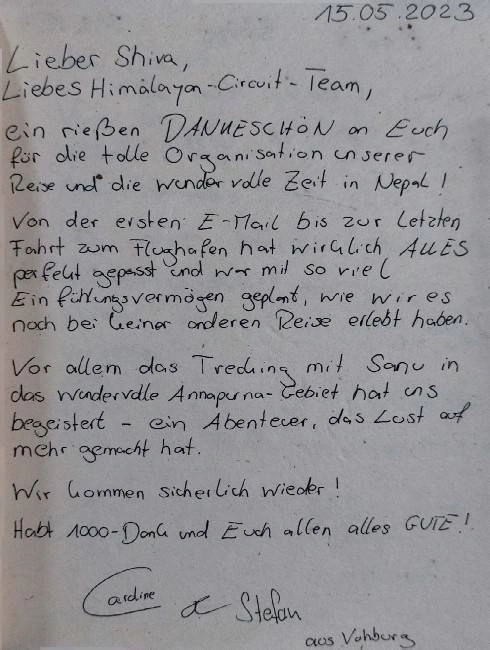 15.05.2023
Lieber Shiva,
Liebes Himalayan-Circuit-Team,
ein rießen DANKESCHÖN an Euch
für die tolle Organisation unserer
Reise und die wundervolle Zeit in Nepal!
Von der ersten E-Mail bis zur letzten
Fahrt zum Flughafen hat wirklich ALLES
perfekt gepasst und war mit so viel
Einfühlungsvermögen geplant, wie wir es
noch bei keiner anderen Reise erlebt haben.
Vor allem das Trecking mit Sanu in
das wundervolle Annapurna-Gebiet hat uns
begeistert - ein Abenteuer, das Lust auf
mehr gemacht hat.
Wir kommen sicherlich wieder!
Habt 1000-Dank und Euch allen alles GUTE!
Caroline & Stefan
aus Vohburg